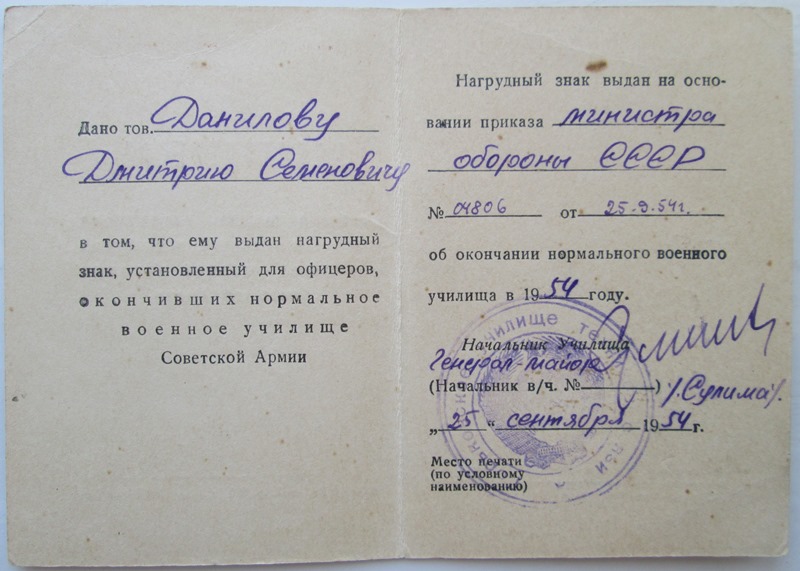 Дано тов. Данилову
Дмитрию Семеновичу
в том, что ему выдан нагрудный
знак, установленный для офицеров,
окончивших нормальное
военное училище
Советской Армии
Нагрудный знак выдан на осно-
вании приказа министра
обороны СССР
№ 04806 от 25-9.54г.
об окончании нормального военного
училища в 1954 году.
Начальник Училища
Генерал-майор
(Начальник в/ч. №)
/.Сулима/.
„25“ сентября 1954 г.
Место печати
(по условному
наименованию)
училище